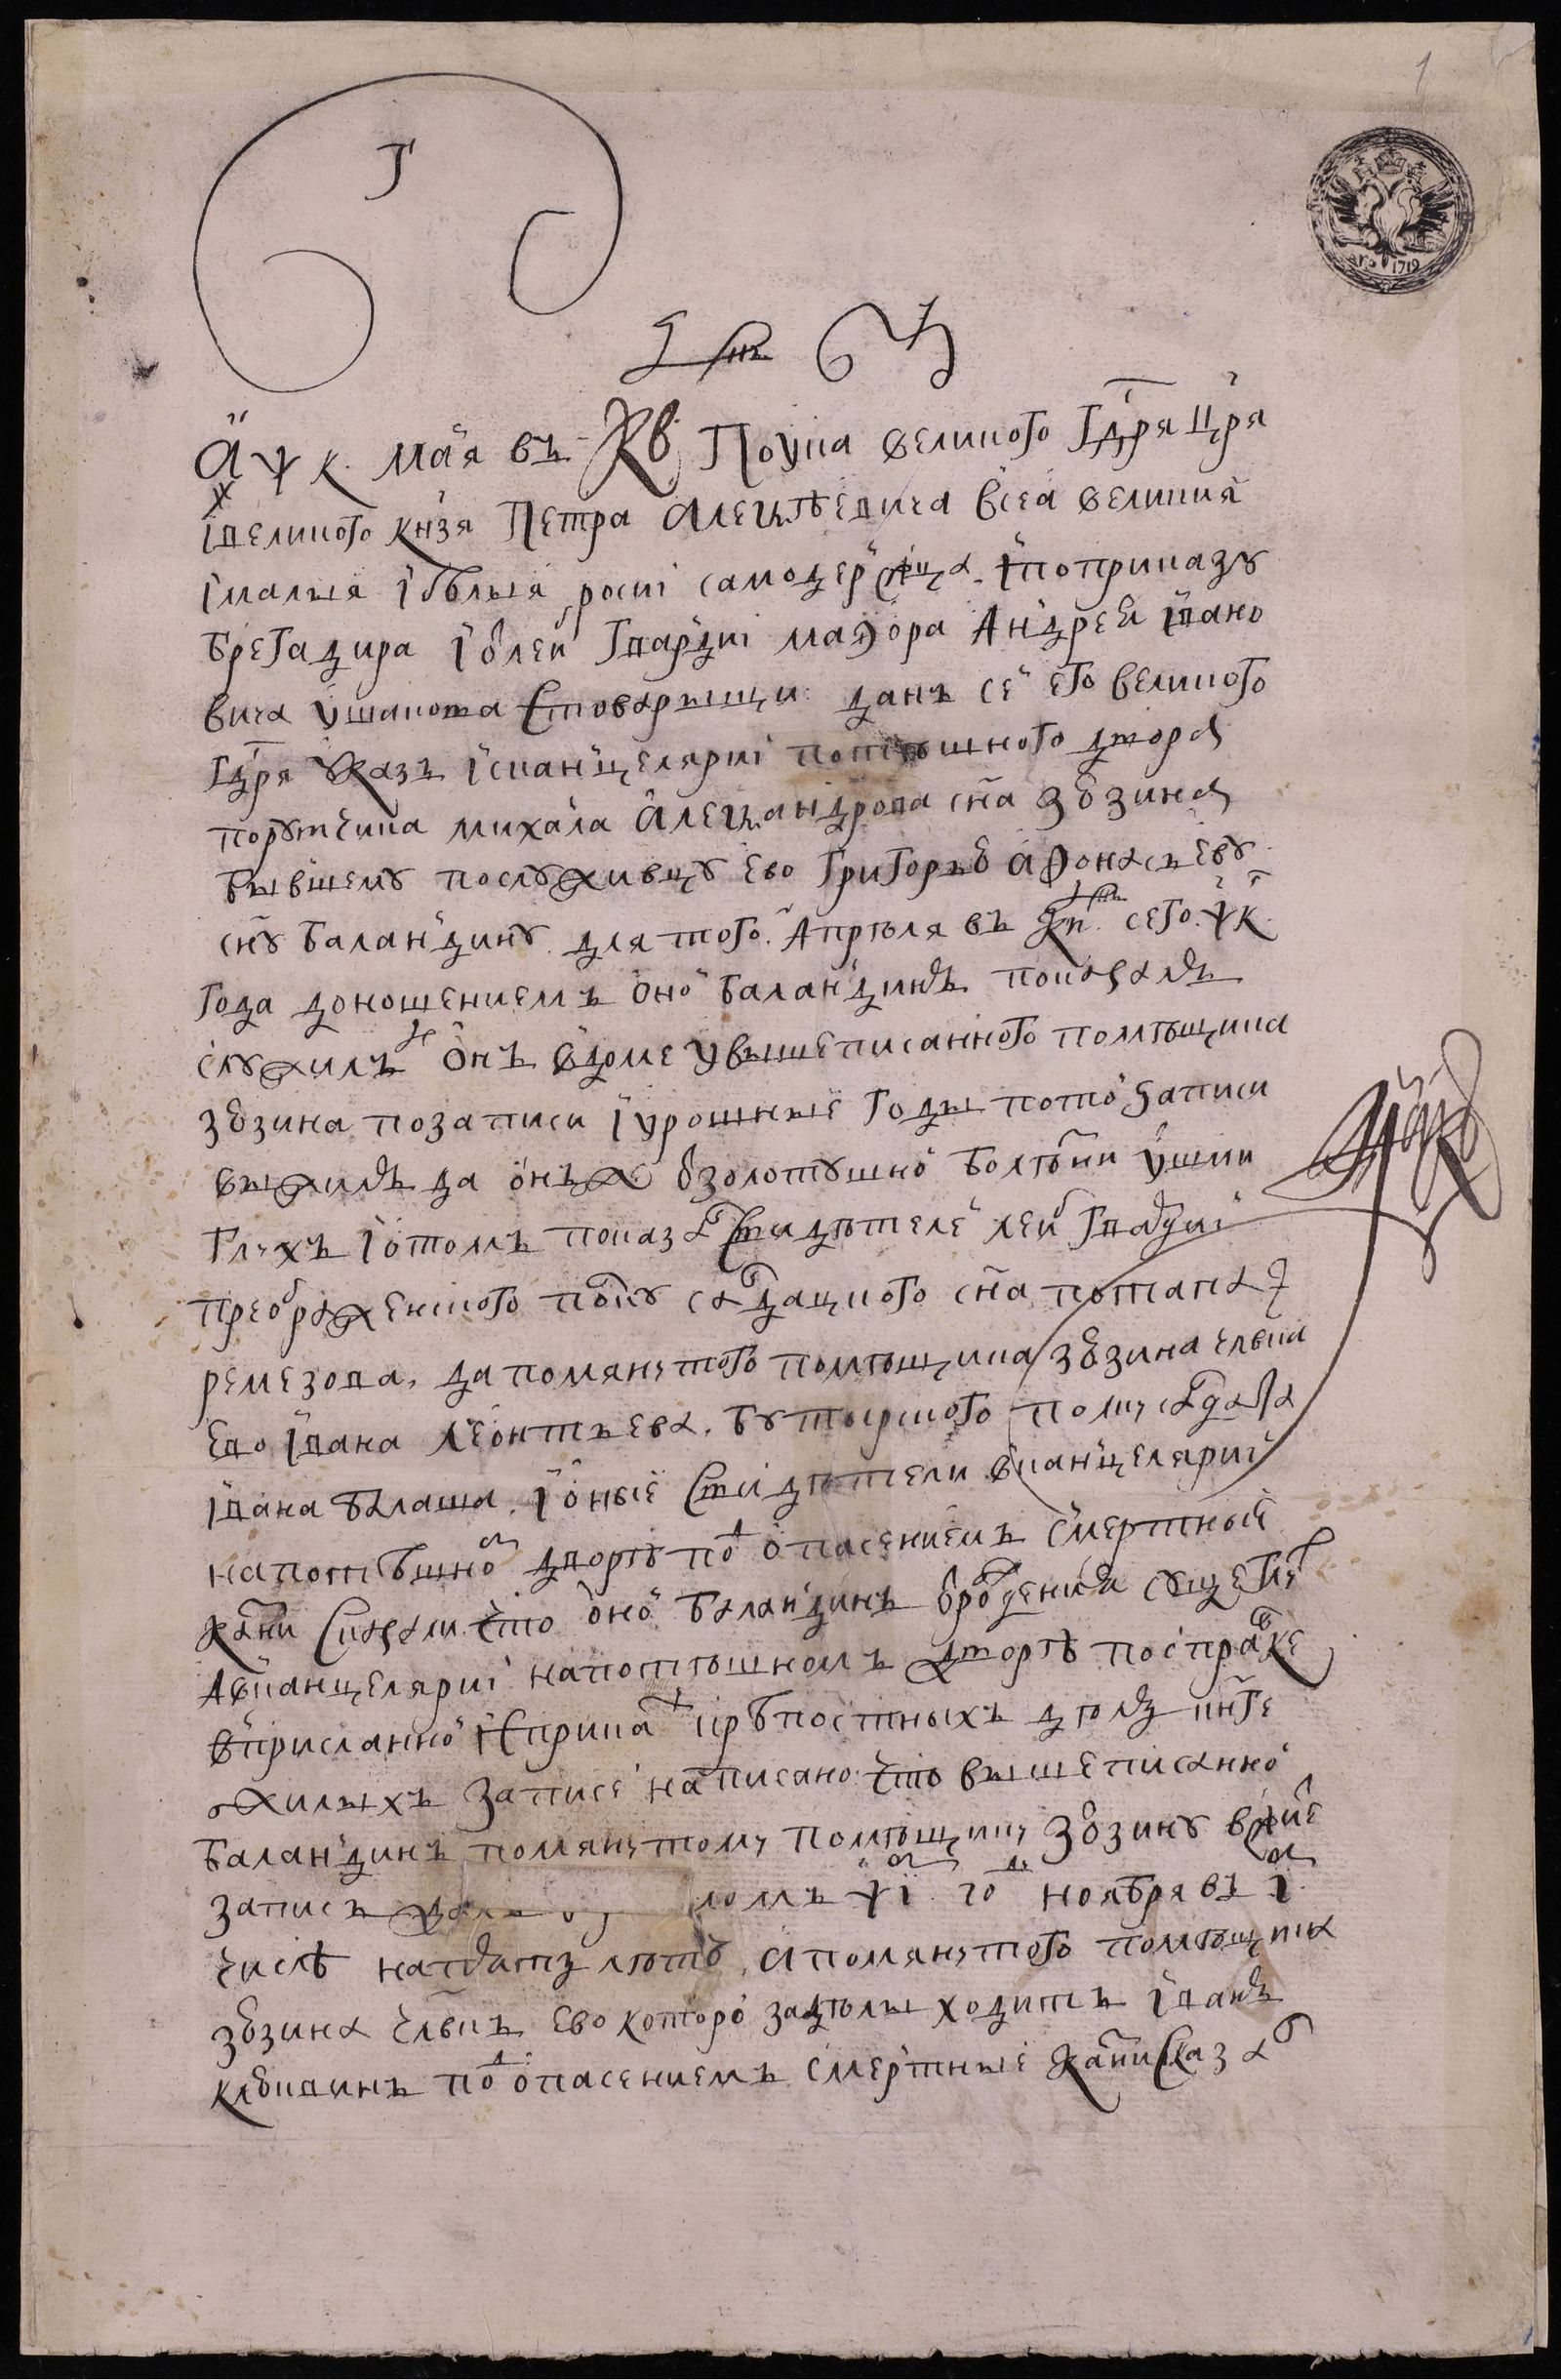 1
1719
҂аѱк маия въ кв по ука великого гдря цря
і великого кнзя Петра Алеѯѣевича всеа великия
і малыя і белыя росиі самодержца і по приказу
брегадира і о лей гвардиі маеора Андрея Івано
вича Ушакова с товарыщи данъ сей его великого
гдря указъ іс канцеляриі потешного двора
порутчика михаила Алеѯандрова сна зыбина
бывшему послуживцу ево григорью аѳонасьеву
сну баландину для того апреля въ сего ѱк
года доношениемъ оной баландинъ показалъ
служилъ онъ в доме у вышеписанного помѣщика
зыбина по записи і урошные годы по той записи
выжилъ да онъ ж о золотушной болѣзни ушми
глухъ і о томъ показал свидѣтелей лейб гвардиі
преображенского полку салдацкого сна потапа
ремезова, да помянутого помѣщика зыбина члвка
ево івана леонтьева, бутырского полку салдата
івана балаша, і оные свидѣтели в канцеляриі
на потешном дворѣ под опасениемъ смертныя
казни сказали что оной баландинъ
а в канцеляриі на потешномъ дворѣ по справке
в присланной ис приказ крѣпостныхъ дѣлъ книге
жилыхъ записей написано что вышеписанной
баландинъ помянутому помѣщику зыбину
запись ѱі году ноября въ і
числѣ на пять лѣтъ, а помянутого помѣщика
зыбина члвкъ ево которой за дѣлы ходитъ іванъ
под опасениемъ смертные казни сказал